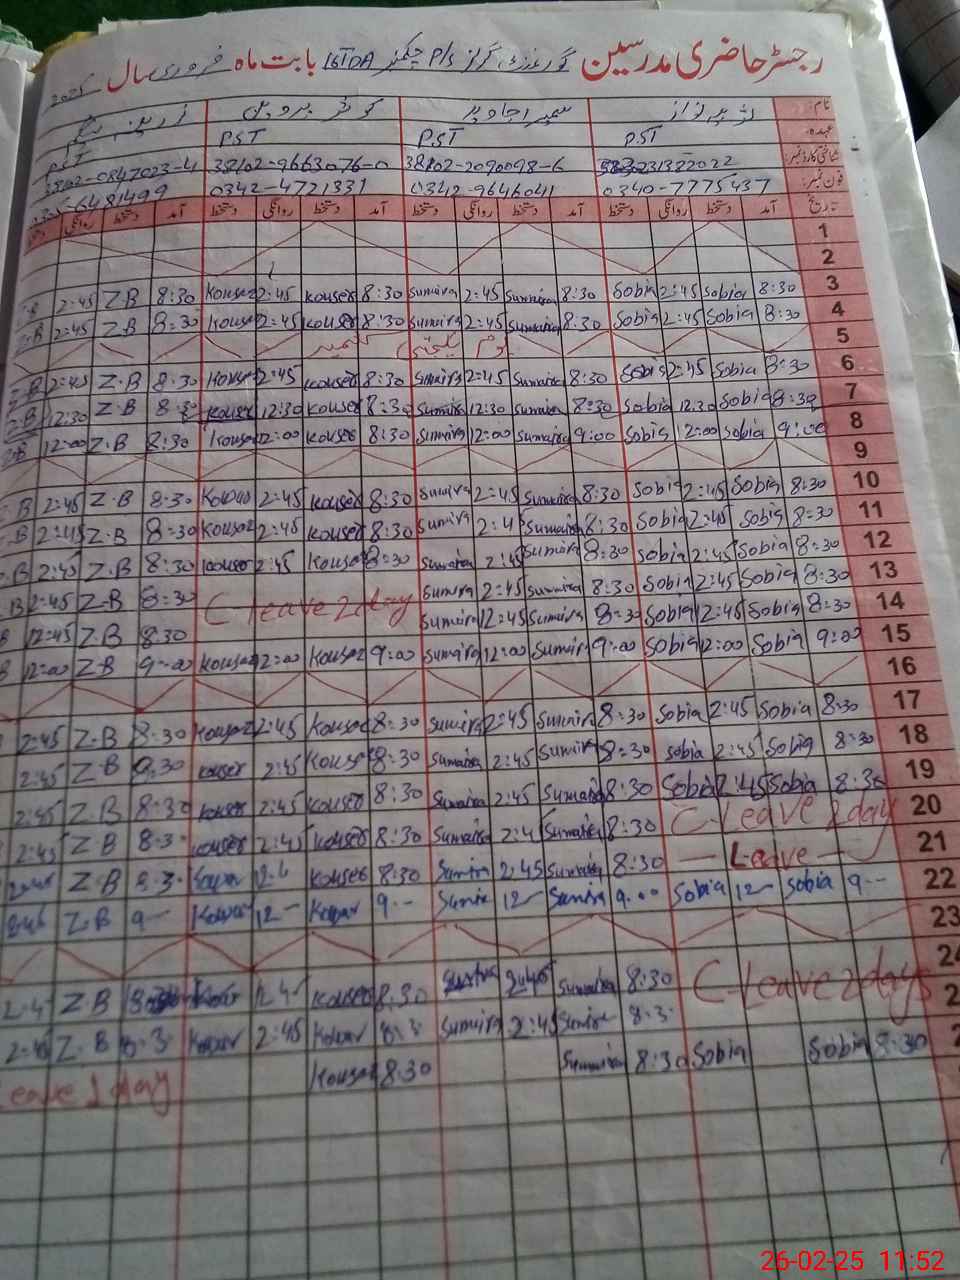 رجسٹر حاضری مدرسین گورنمنٹ گرلز P/S چکنمبر 16TDA بابت ماہ فروری سال 2025
نام: ثوبیہ نواز سمیرا جاوید کوثر پروین زرینہ بیگم
عہدہ: PST PST PST PST
شناختی کارڈ نمبر: 38102-2090098-6 38102-9663076-0 38102-0847023-4
فون نمبر: 0340-7775437 0342-9646041 0342-4721331
تاریخ آمد دستخط روانگی دستخط آمد دستخط روانگی دستخط آمد دستخط روانگی دستخط آمد دستخط روانگی
1
2
3 8:30 Sobia 2:45 Sobia 8:30 Sumaira 2:45 Sumaira 8:30 Kouser 2:45 Kousar 8:30 Z.B 2:45
4 8:30 Sobia 2:45 Sobia 8:30 Sumaira 2:45 Sumaira 8:30 Kouser 2:45 Kousar 8:30 Z.B 2:45 Z.B
5 یوم یکجہتی کشمیر
6 8:30 Sobia 2:45 Sobia 8:30 Sumaira 2:45 Sumaira 8:30 Kouser 2:45 Kouser 8:30 Z.B 2:45 Z.B
7 8:30 Sobia 12:30 Sobia 8:30 Sumaira 12:30 Sumaira 8:30 Kouser 12:30 Kouser 8:30 Z.B 12:30 Z.B
8 9:00 Sobia 12:00 Sobia 9:00 Sumaira 12:00 Sumaira 8:30 Kouser 12:00 Kousar 8:30 Z.B 12:00 Z.B
9
10 8:30 Sobia 2:45 Sobia 8:30 Sumaira 2:45 Sumira 8:30 Kouser 2:45 Kousar 8:30 Z.B 2:45 B
11 8:30 Sobia 2:45 Sobia 8:30 Sumaira 2:4 Sumira 8:30 Kouser 2:45 Kousar 8:30 Z.B 2:45 B
12 8:30 Sobia 2:45 Sobia 8:30 Sumira 2:45 Sumaira 8:30 Kousar 2:45 Kouser 8:30 Z.B 2:45 B
13 8:30 Sobia 2:45 Sobia 8:30 Sumira 2:45 Sumira C-leave 2 day 8:30 Z.B 2:45 B
14 8:30 Sobia 12:45 Sobia 8:30 Sumira 12:45 Sumira 8:30 Z.B 12:45 B
15 9:00 Sobia 12:00 Sobia 9:00 Sumira 12:00 Sumaira 9:00 Kousar 12:00 Kousar 9:00 Z.B 12:00 B
16
17 8:30 Sobia 2:45 Sobia 8:30 Sumaira 2:45 Sumaira 8:30 Kousar 2:45 Kousar 8:30 Z.B 2:45
18 8:30 Sobia 2:45 Sobia 8:30 Sumira 2:45 Sumaira 8:30 Kousar 2:45 Kouser 8:30 Z.B 2:45
19 8:30 Sobia 2:45 Sobia 8:30 Sumaira 2:45 Sumaira 8:30 Kouser 2:45 Kouser 8:30 Z.B 2:45
20 C-Leave 2 day 8:30 Sumaira 2:4 Sumaira 8:30 Kouser 2:45 Kouser 8:3 Z.B 2:45
21 Leave 8:30 Sumaira 2:45 Sumira 8:30 Kouser 12:4 8:3 Z.B 2:45
22 9 Sobia 12 Sobia 9:00 Sumira 12 Sumira 9 Kousar 12 Kousar 9 Z.B
23
24 C-leave 2 days 8:30 Sumaira 2:45 8:30 Kouser 12:4 Z.B 2:4
2 8:3 Sumira 2:45 Sumira 8:3 Kousar 2:45 Kousar 8:3 Z.B 2:45
2 8:30 Sobia Sobia 8:30 Sumaira 8:30 Kousar Leave 1 day
26-02-25 11:52